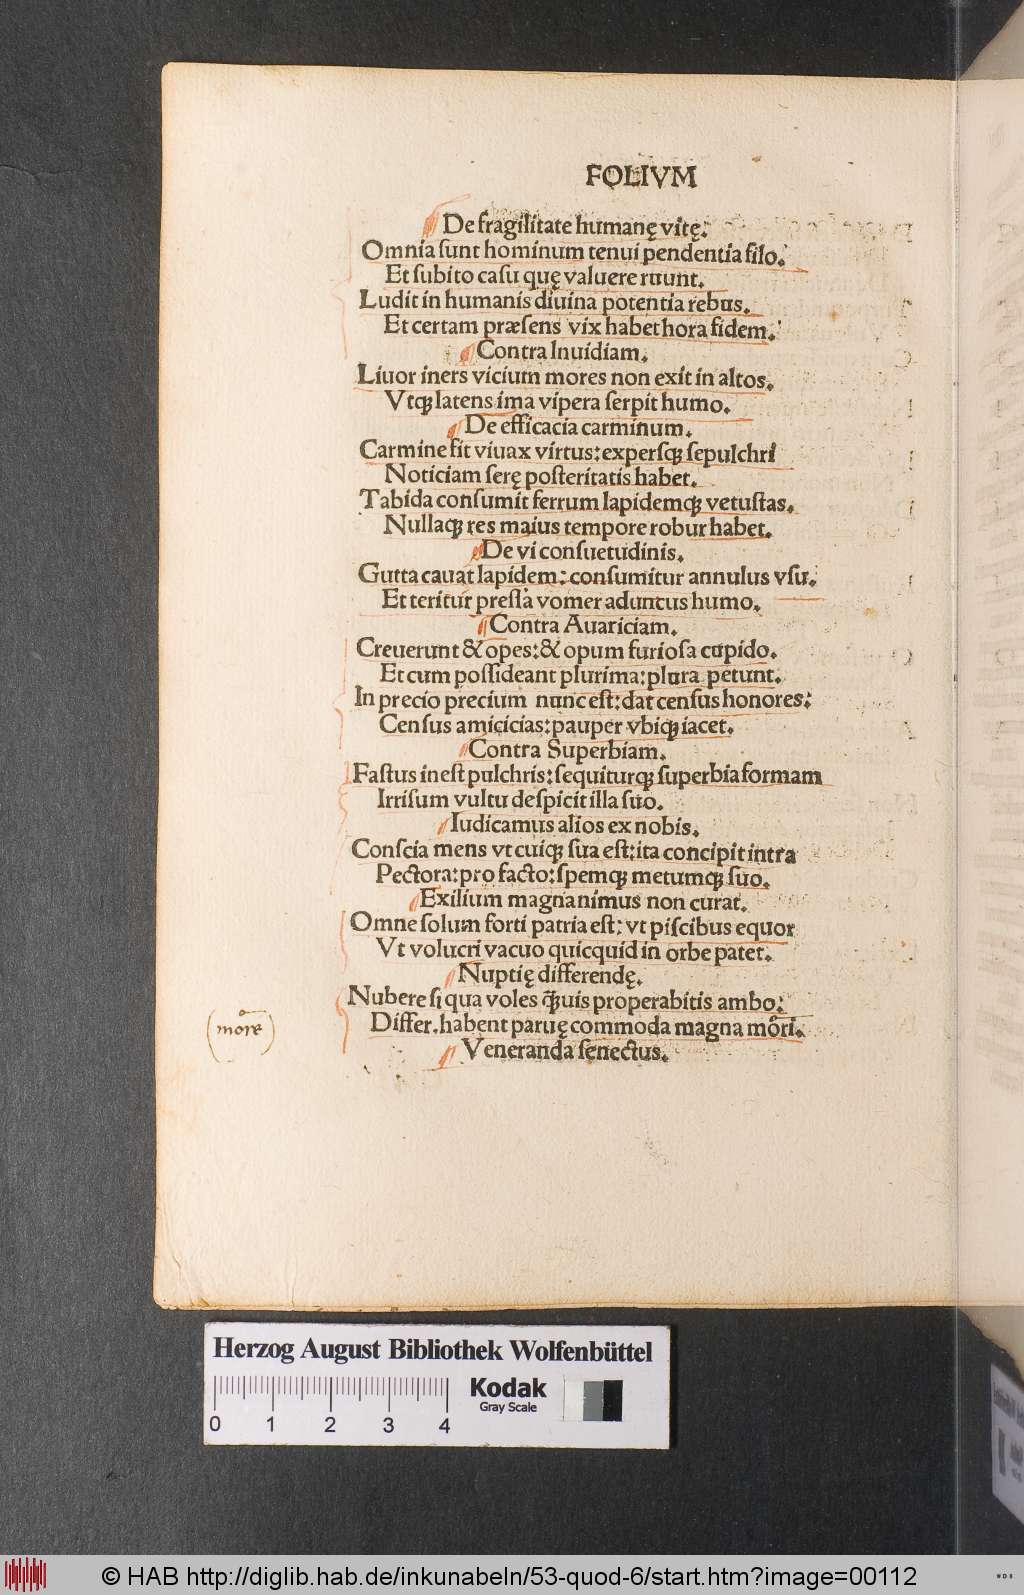 FOLIVM
De fragilitate humanę vitę:
Omnia sunt hominum tenui pendentia filo.
Et subito casu quę valuere ruunt.
Ludit in humanis diuina potentia rebus.
Et certam præsens vix habet hora fidem.
Contra Inuidiam.
Liuor iners vicium mores non exit in altos.
Vtqꝫ latens ima vipera serpit humo.
De efficacia carminum.
Carmine fit viuax virtus: expersqꝫ sepulchri
Noticiam serę posteritatis habet.
Tabida consumit ferrum lapidemqꝫ vetustas.
Nullaqꝫ res maius tempore robur habet.
De vi consuetudinis.
Gutta cauat lapidem: consumitur annulus vsu.
Et teritur pressa vomer aduncus humo.
Contra Auariciam.
Creuerunt & opes: & opum furiosa cupido.
Et cum possideant plurima: plura petunt.
In precio precium nunc est: dat census honores:
Census amicicias: pauper vbiqꝫ iacet.
Contra Superbiam.
Fastus inest pulchris: sequiturqꝫ superbia formam
Irrisum vultu despicit illa suo.
Iudicamus alios ex nobis.
Conscia mens vt cuiqꝫ sua est: ita concipit intra
Pectora: pro facto: spemqꝫ metumqꝫ suo.
Exilium magnanimus non curat.
Omne solum forti patria est: vt piscibus equor
Vt volucri vacuo quicquid in orbe patet.
Nuptię differendę.
Nubere si qua voles q̃uis properabitis ambo:
Differ. habent paruę commoda magna mori.
more
Veneranda senectus.
Herzog August Bibliothek Wolfenbüttel
Kodak
Gray Scale
0 1 2 3 4
© HAB http://diglib.hab.de/inkunabeln/53-quod-6/start.htm?image=00112